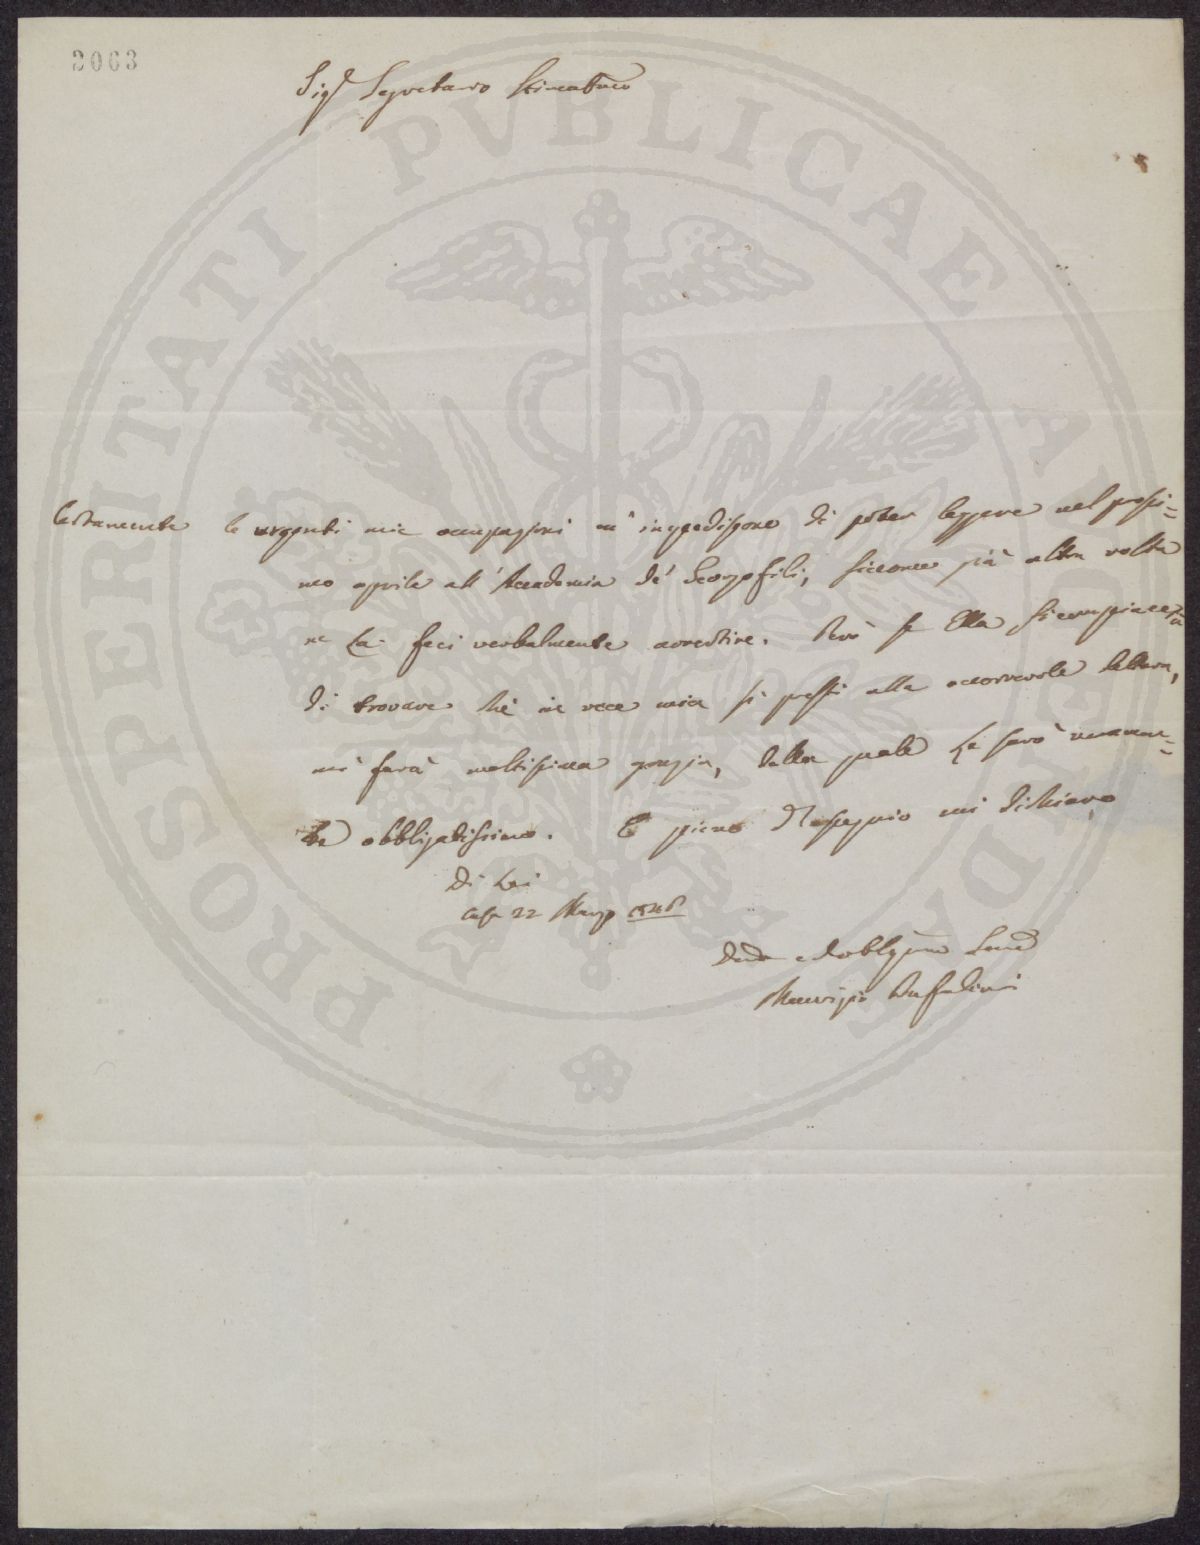 2063
PROSPERITATI PVBLICAE AVGENDAE
Sig.r Segretario Stimatmo
Certamente le urgenti mie occupazioni m'impediscono di poter leggere nel prossi=
mo aprile all'Accademia de' Georgofili, siccome già altra volta
ne La feci verbalmente avvertire. Però se Ella si compiacerà
di trovare chi in vece mia si presti alla occorrevole lettura,
mi farà moltissima grazia, della quale Le sarò veramen=
te obbligatissimo. E pieno d'ossequio mi dichiaro
Di Lei
Casa 22 Marzo
Dev e Obblgmo
Maurizio Bufalini